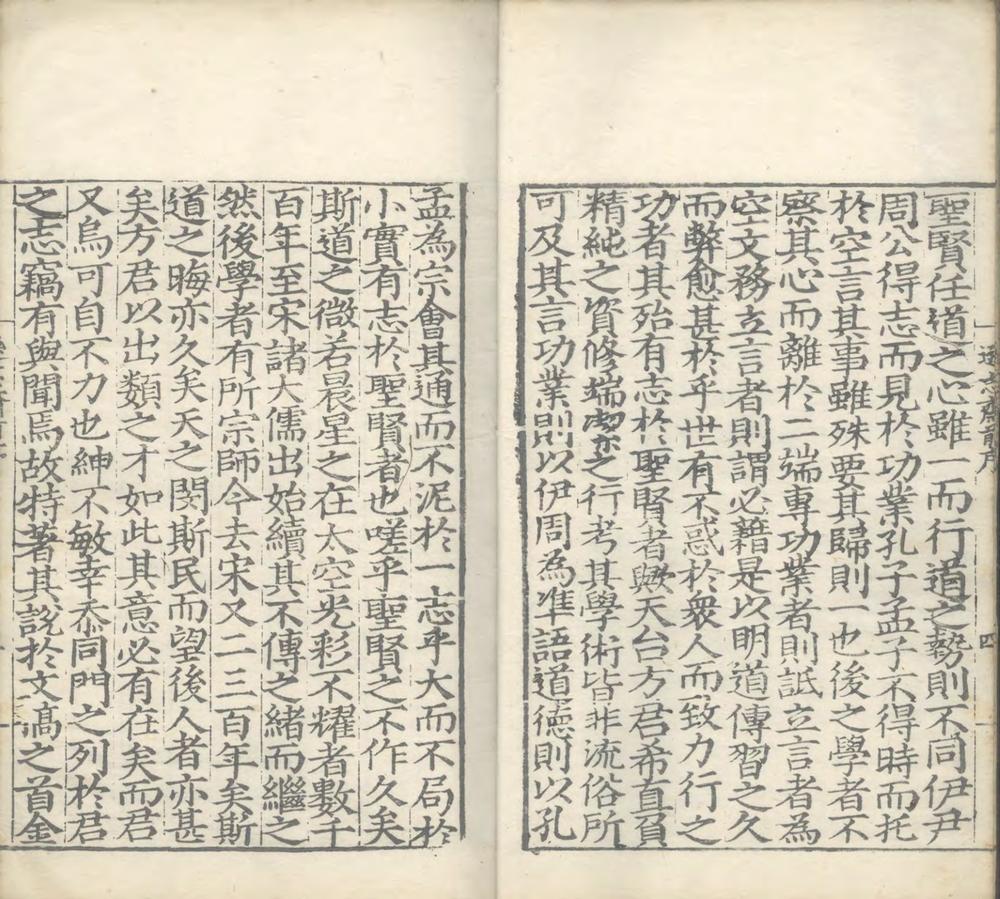 聖賢任道之心雖一而行道之勢則不同伊尹
周公得志而見於功業孔子孟子不得時而托
於空言其事雖殊要其歸則一也後之學者不
察其心而離於二端專功業者則詆立言者為
空文務立言者則謂必藉是以明道傳習之久
而弊愈甚於乎世有不惑於衆人而致力行之
功者其殆有志於聖賢者歟天台方君希直負
精純之資修端潔之行考其學術皆非流俗所
可及其言功業則以伊周為準語道德則以孔
孟為宗會其通而不泥於一志乎大而不局於
小實有志於聖賢者也嗟乎聖賢之不作久矣
斯道之微若晨星之在太空光彩不耀者數千
百年至宋諸大儒出始續其不傳之緒而繼之
然後學者有所宗師今去宋又二三百年矣斯
道之晦亦久矣天之閔斯民而望後人者亦甚
矣方君以出類之才如此其意必有在矣而君
又烏可自不力也紳不敏幸忝同門之列於君
之志竊有與聞焉故特著其說於文藁之首金
四